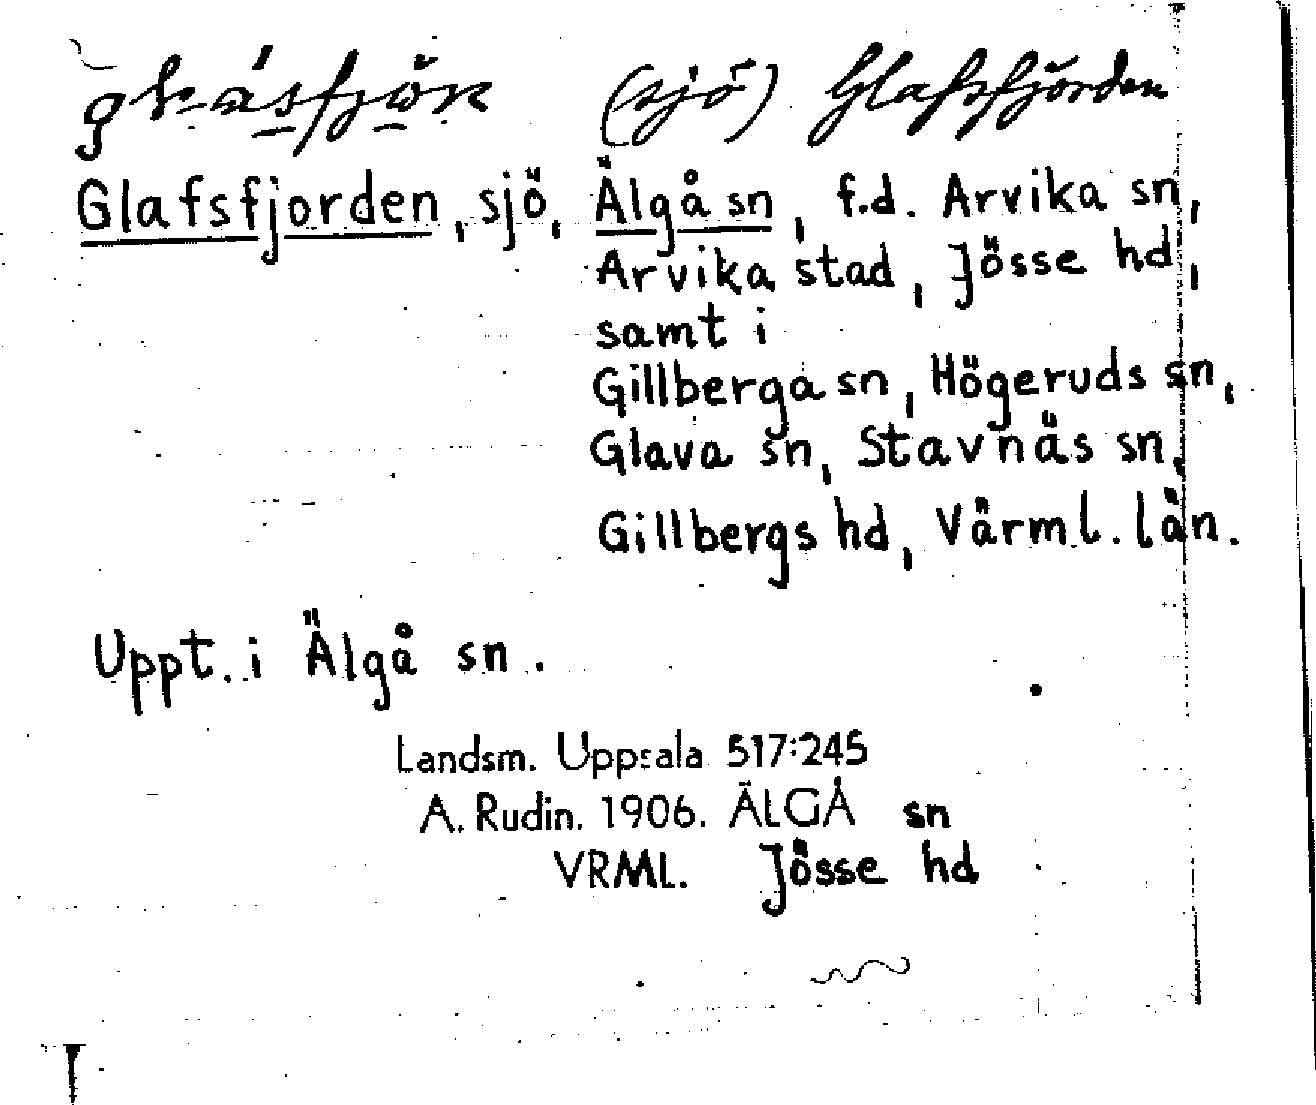 (sjö) Glafsfjorden
Glafsfjorden, sjö, Älgå sn, f.d. Arvika sn,
Arvika stad, Jösse hd,
samt i
Gillberga sn, Högeruds sn,
Glava sn, Stavnäs sn,
Gillbergs hd, Värml. län.
Uppt. i Älgå sn.
Landsm. Uppsala 517:245
A. Rudin. 1906. ÄLGÅ sn
VRML. Jösse hd